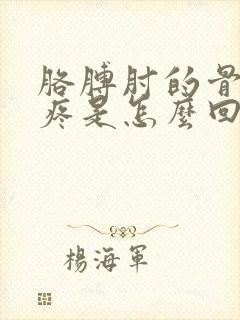 胳膊肘的骨
疼是怎麼回
楊海軍